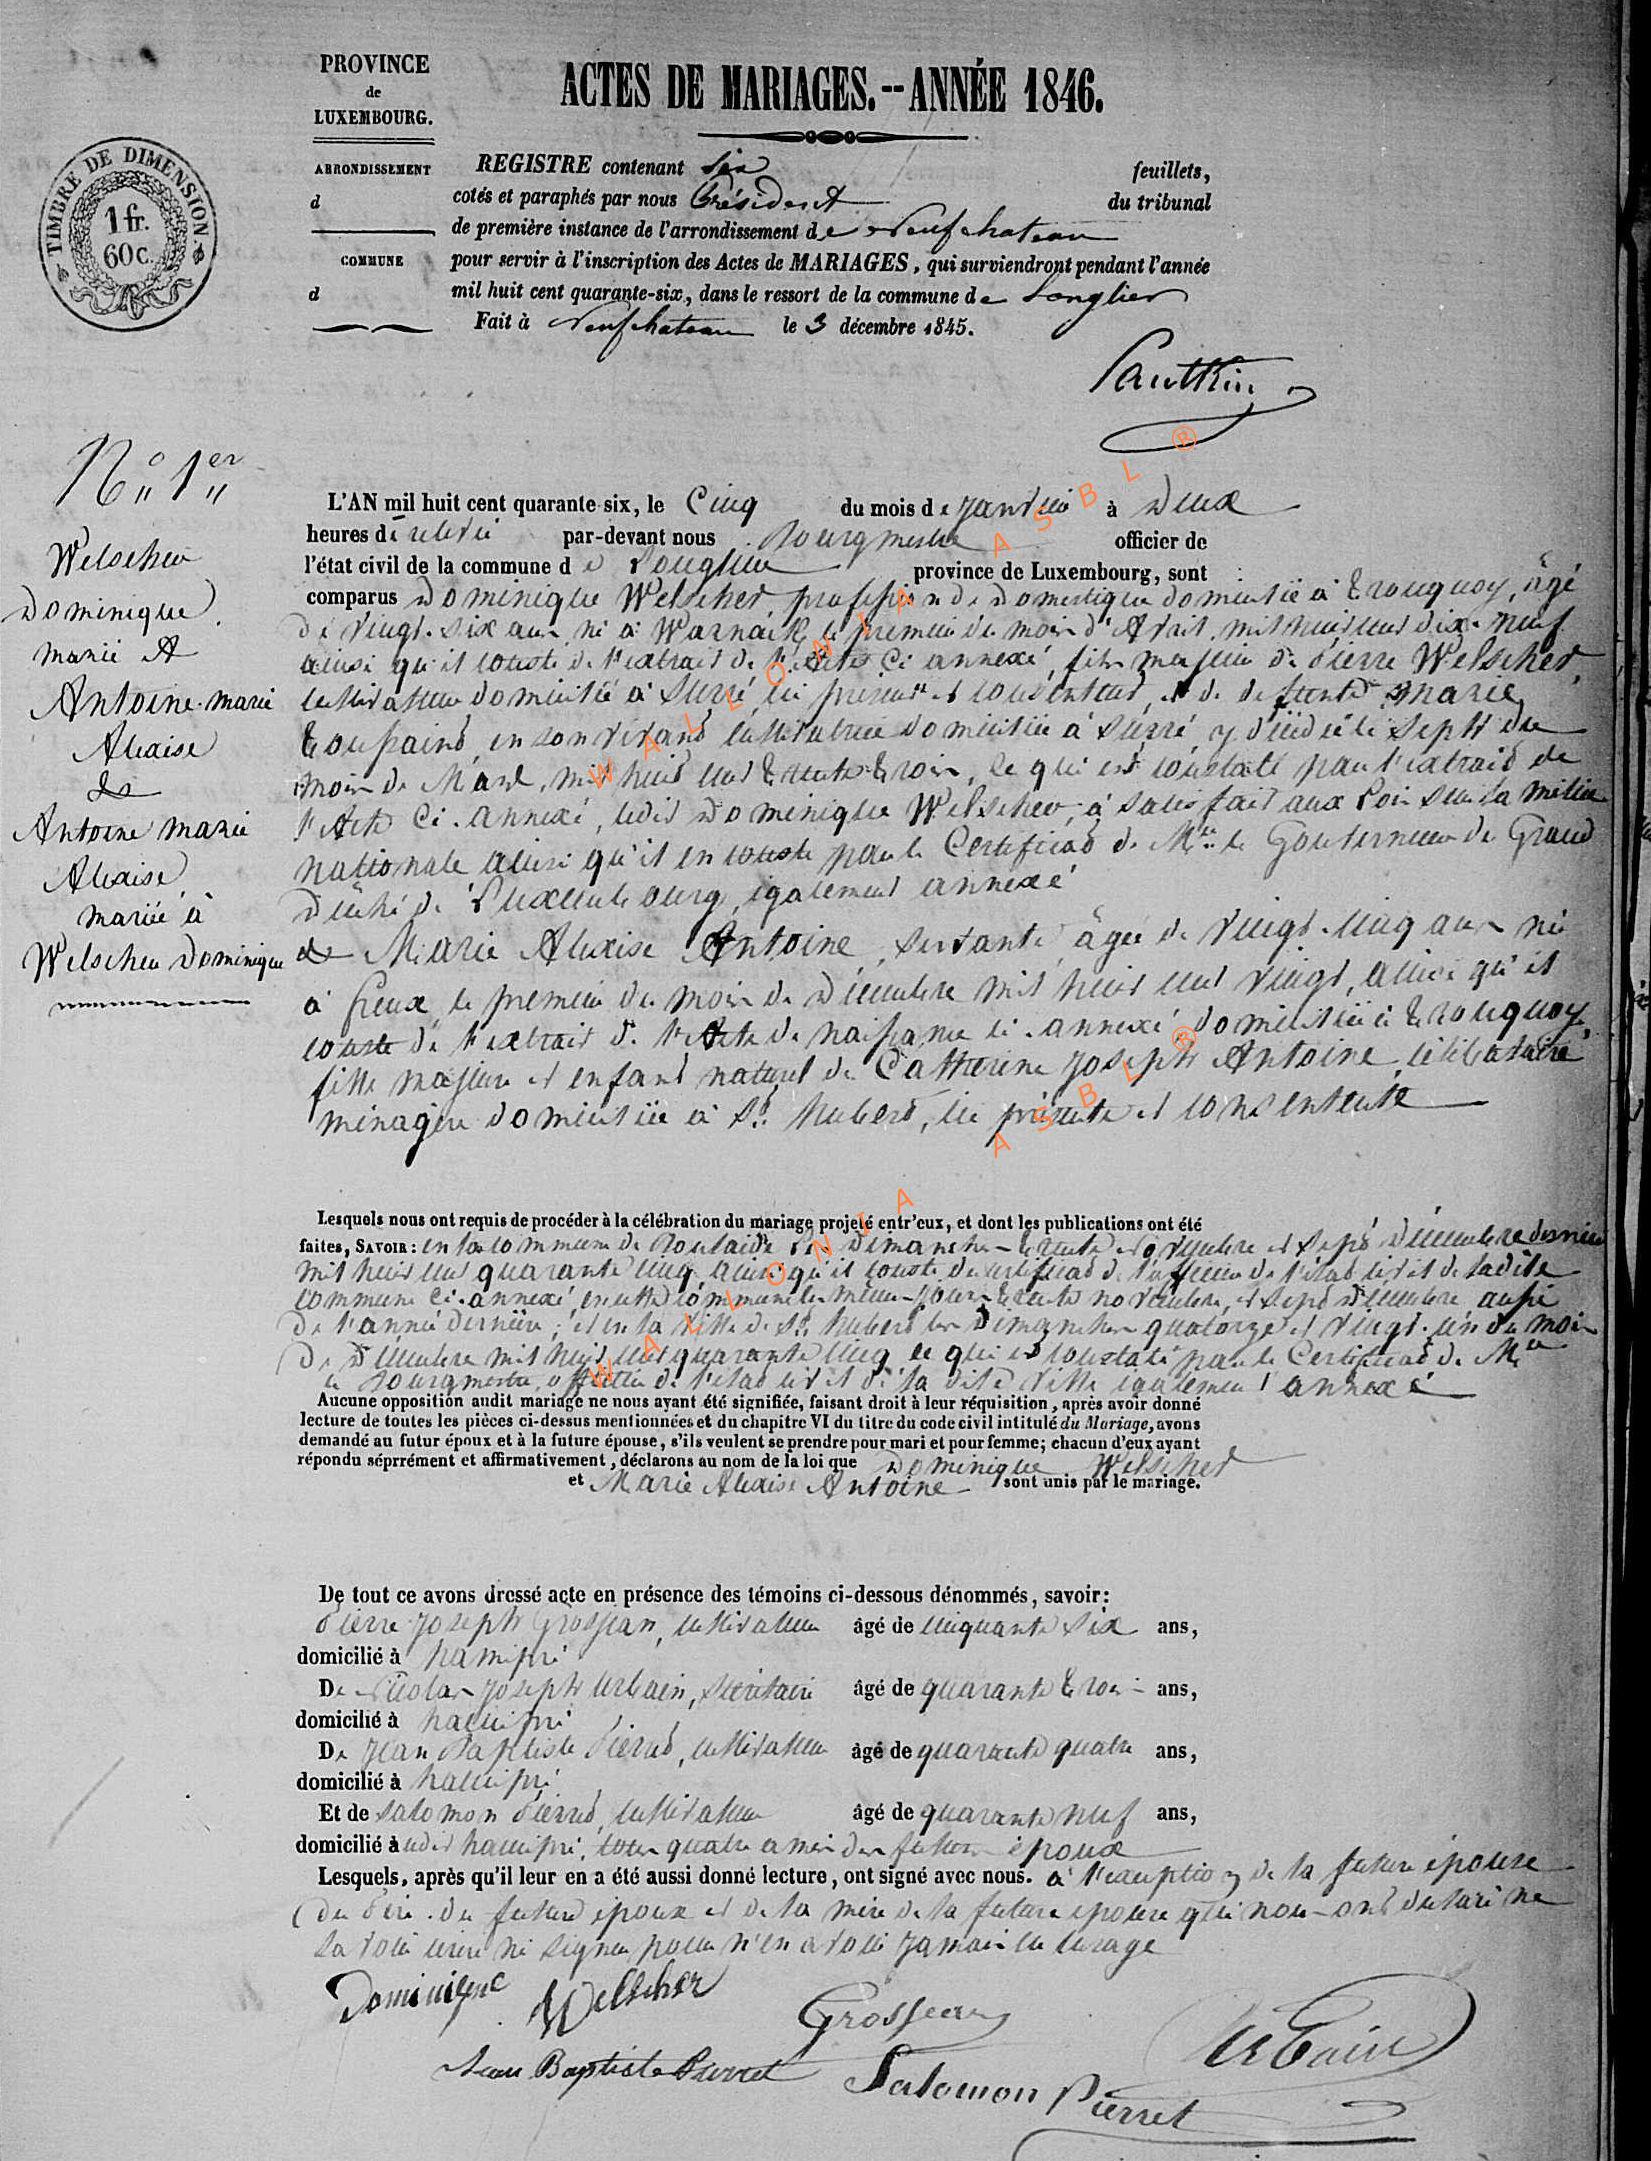 PROVINCE
de
LUXEMBOURG.
ACTES DE MARIAGES.--ANNÉE 1846.
TIMBRE DE DIMENSION
1 fr.
60 c.
ARRONDISSEMENT
d
COMMUNE
d
REGISTRE contenant six feuillets,
cotés et paraphés par nous Président du tribunal
de première instance de l'arrondissement de Neufchateau
pour servir à l'inscription des Actes de MARIAGES, qui surviendront pendant l'année
mil huit cent quarante-six, dans le ressort de la commune de Longlier
Fait à Neufchateau le 3 décembre 1845.
N° 1er
Welscher
Dominique
marié A
Antoine marie
Alexise
&
Antoine Marie
Alexise
mariée à
Welscher Dominique
L'AN mil huit cent quarante-six, le Cinq du mois de Janvier à Deux
heures de relevée par-devant nous Bourgmestre officier de
l'état civil de la commune de Longlier province de Luxembourg, sont
comparus Dominique Welscher, profession de Domestique domicilié à Tronquoy, âgé
de vingt-six ans né à Warnach le premier du mois d'Avril mil huit cent dix-neuf
ainsi qu'il conste de l'extrait de l'Acte Ci annexé, fils majeur de Pierre Welscher,
cultivateur domicilié à Surré, ici présent et consentant, et de defunte Marie
Toupaint, en son vivant cultivatrice domiciliée à Surré, y décédée le sept du
mois de Mars, mil huit cent trente-trois, ce qui est constaté par l'extrait de
l'Acte Ci-annexé, ledit Dominique Welscher, à satisfait aux Lois sur la milice
nationale ainsi qu'il en conste par le Certificat de Mr le Gouverneur du Grand
Duché de Luxembourg, également annexé
& Marie Alexise Antoine, servante, âgée de vingt-cinq ans née
à freux, le premier du mois de Décembre mil huit cent vingt, ainsi qu'il
conste de l'extrait de l'Acte de naissance ci-annexé domiciliée à Tronquoy,
fille majeure et enfant naturel de Catherine Joseph Antoine, célibataire
ménagère domiciliée à St. hubert, ici présente et consentente
Lesquels nous ont requis de procéder à la célébration du mariage projeté entr'eux, et dont les publications ont été
faites, SAVOIR: en la commune de Boulaide les Dimanches trente novembre et sept Décembre dernier
mil huit cent quarante cinq, ainsi qu'il conste du certificat de l'officier de l'état civil de ladite
commune Ci-annexé, en cette commune les mêmes jours trente novembre, et sept Décembre aussi
de l'année dernière; et en la ville de St. hubert les Dimanches quatorze et vingt-un du mois
de Décembre mil huit cent quarante cinq ce qui est constaté par le Certificat de Mr
le Bourgmestre, officier de l'état civil de la dite ville également annexé
Aucune opposition audit mariage ne nous ayant été signifiée, faisant droit à leur réquisition, après avoir donné
lecture de toutes les pièces ci-dessus mentionnées et du chapitre VI du titre du code civil intitulé du Mariage, avons
demandé au futur époux et à la future épouse, s'ils veulent se prendre pour mari et pour femme; chacun d'eux ayant
répondu séprrément et affirmativement, déclarons au nom de la loi que Dominique Welscher
et Marie Alexise Antoine sont unis par le mariage.
De tout ce avons dressé acte en présence des témoins ci-dessous dénommés, savoir:
Pierre Joseph Grosjean, cultivateur âgé de cinquante six ans,
domicilié à hamipré
De Nicolas Joseph Urbain, secrétaire âgé de quarante trois ans,
domicilié à hamipré
De Jean Baptiste Pierret, cultivateur âgé de quarante quatre ans,
domicilié à hamipré
Et de Salomon Pierret, cultivateur âgé de quarante neuf ans,
domicilié à udit hamipré, tous quatre amis des futurs époux
Lesquels, après qu'il leur en a été aussi donné lecture, ont signé avec nous. à l'exception de la future épouse
du Père du futur époux et de la mère de la future épouse qui nous ont déclaré ne
savoir écrire ni signer pour n'en avoir jamais eu l'usage
Dominique Welscher
Grosjean
Urbain
Jean Baptiste Pierret
Salomon Pierret
WALLONIA ASBL ®
WALLONIA ASBL ®